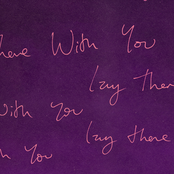 here With You
Izzy There
With You
Izzy there
h You